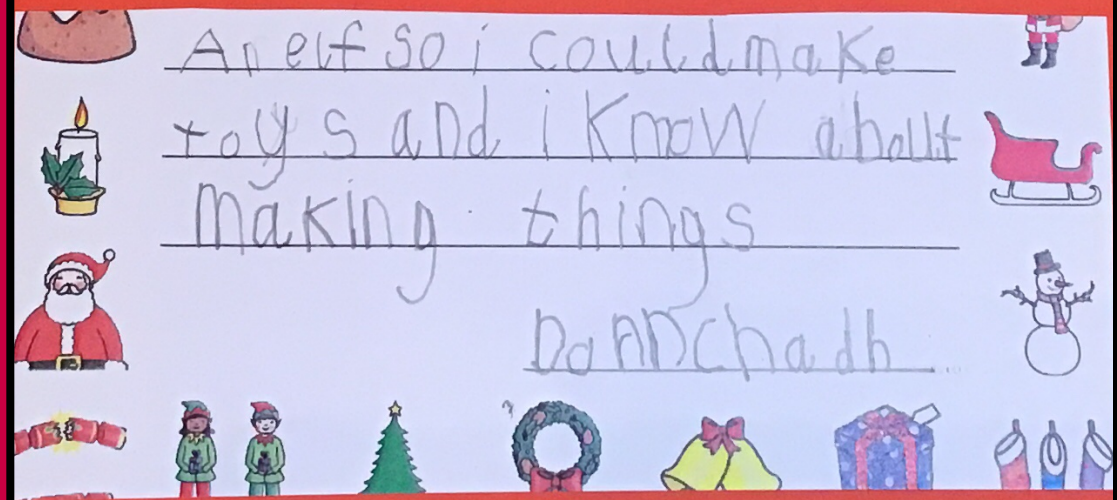 An elf so i could make
toys and i know about
making things
Donnchadh